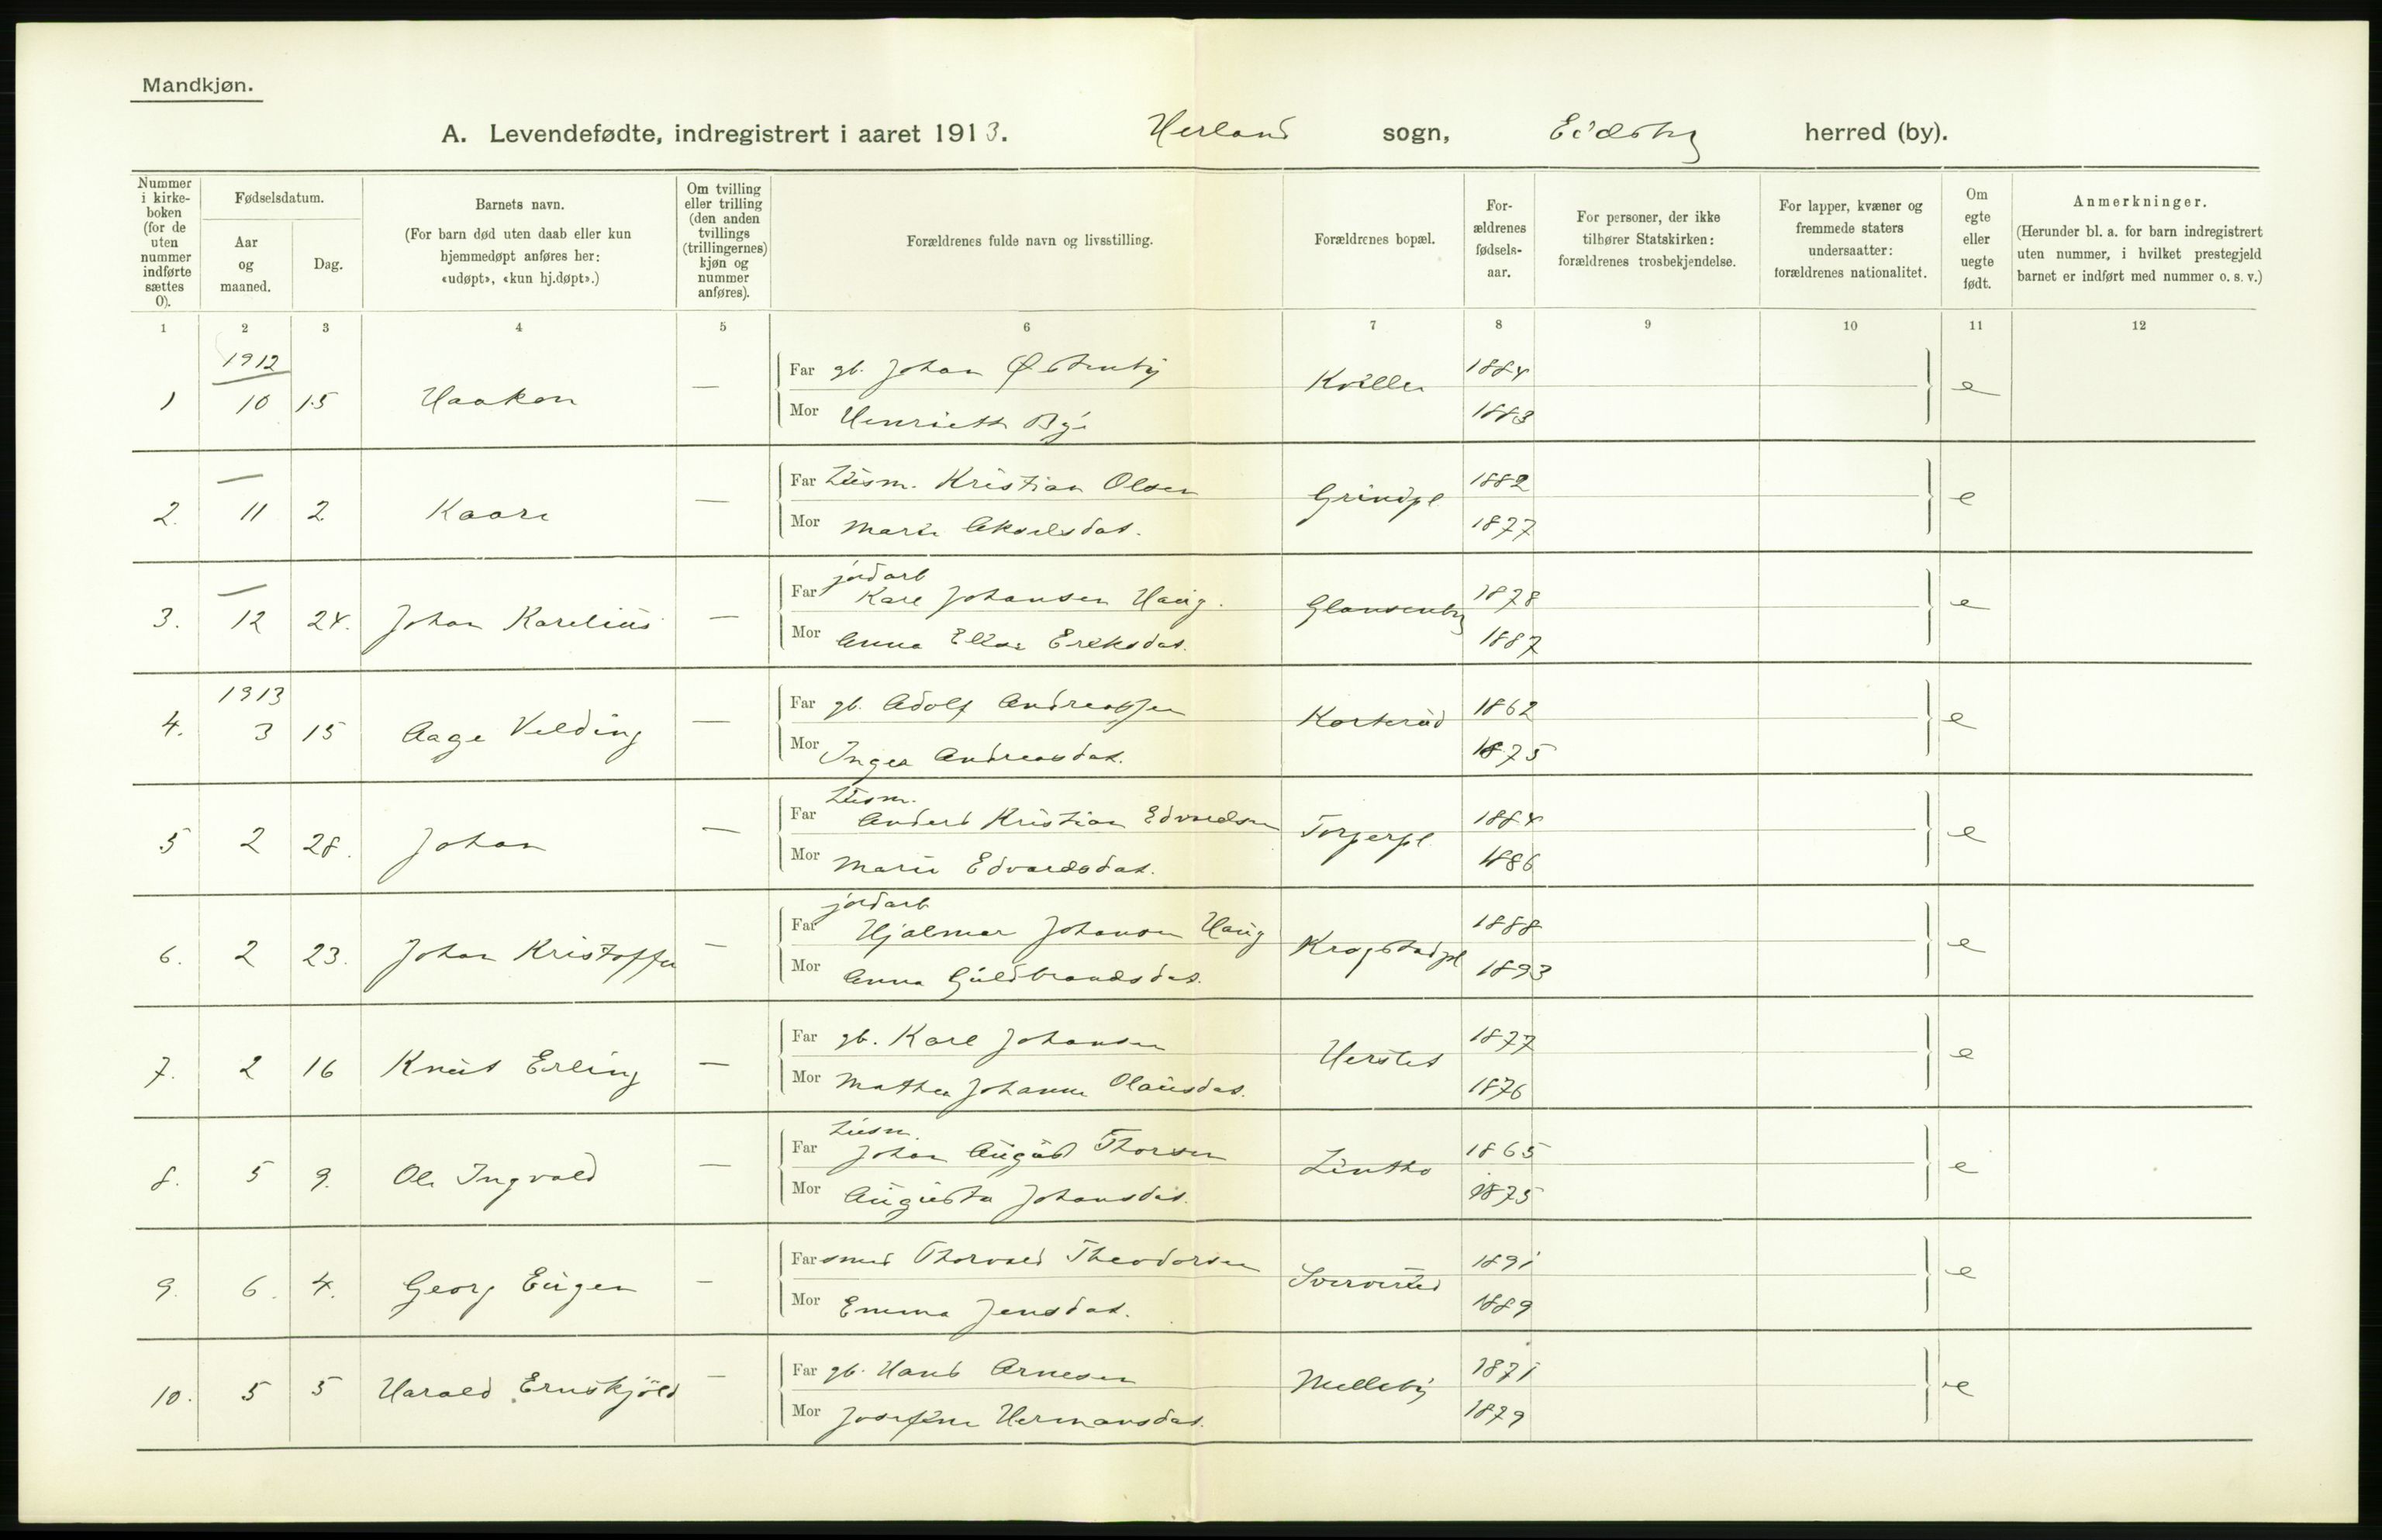 Mandkjøn.
A. Levendefødte, indregistrert i aaret 1913. Herland sogn, Eidsbg herred (by).
Nummer i kirke-boken (for de uten nummer indførte sættes 0).
Fødselsdatum.
Aar og maaned.
Dag.
Barnets navn.
(For barn død uten daab eller kun hjemmedøpt anføres her: «udøpt», «kun hj.døpt».)
Om tvilling eller trilling (den anden tvillings (trillingernes) kjøn og nummer anføres).
Forældrenes fulde navn og livsstilling.
Forældrenes bopæl.
For-ældrenes fødsels-aar.
For personer, der ikke tilhører Statskirken: forældrenes trosbekjendelse.
For lapper, kvæner og fremmede staters undersaatter: forældrenes nationalitet.
Om egte eller uegte født.
Anmerkninger.
(Herunder bl. a. for barn indregistrert uten nummer, i hvilket prestegjeld barnet er indført med nummer o. s. v.)
1 2 3 4 5 6 7 8 9 10 11 12
1912
1 10 15 Haakon — Far gb. Johan Østenby Kviller 1884 e
Mor Henriette Bye 1883
—
2. 11 2 Kaare — Far Husm. Kristian Olsen Grindpl. 1882 e
Mor Marie Akselsdat. 1877
—
3. 12 24. Johan Karelius — Far jordarb Karl Johansen Haug. 1878 e
Mor Anna Elise Eriksdat. 1887
1913
4. 3 15 Aage Velding — Far gb. Adolf Andreassen Korterud 1862 e
Mor Inger Andreasdat. 1875
5 2 28. Johan — Far Husm. Anders Kristian Edvardsen Torperpl. 1884 e
Mor Marie Edvardsdat. 1886
6. 2 23. Johan Kristoffer — Far jordarb Hjalmar Johansen Haug Krogstadpl 1888 e
Mor Anna Guldbrandsdat. 1893
7. 2 16 Knut Erling — Far gb. Karl Johansen Hersted 1877 e
Mor Mathea Johanne Olausdat. 1876
8. 5 9. Ole Ingvald — Far Husm. Johan August Thorsen Lintho 1865 e
Mor Augusta Johansdat. 1875
9. 6. 4. Georg Eugen — Far smed Thorvald Theodorsen 1891 e
Mor Emma Jensdat. 1889
10. 5 5 Harald Ernskjöld — Far gb. Hans Arnesen Melleby 1871 e
Mor Josefine Hermansdat. 1879